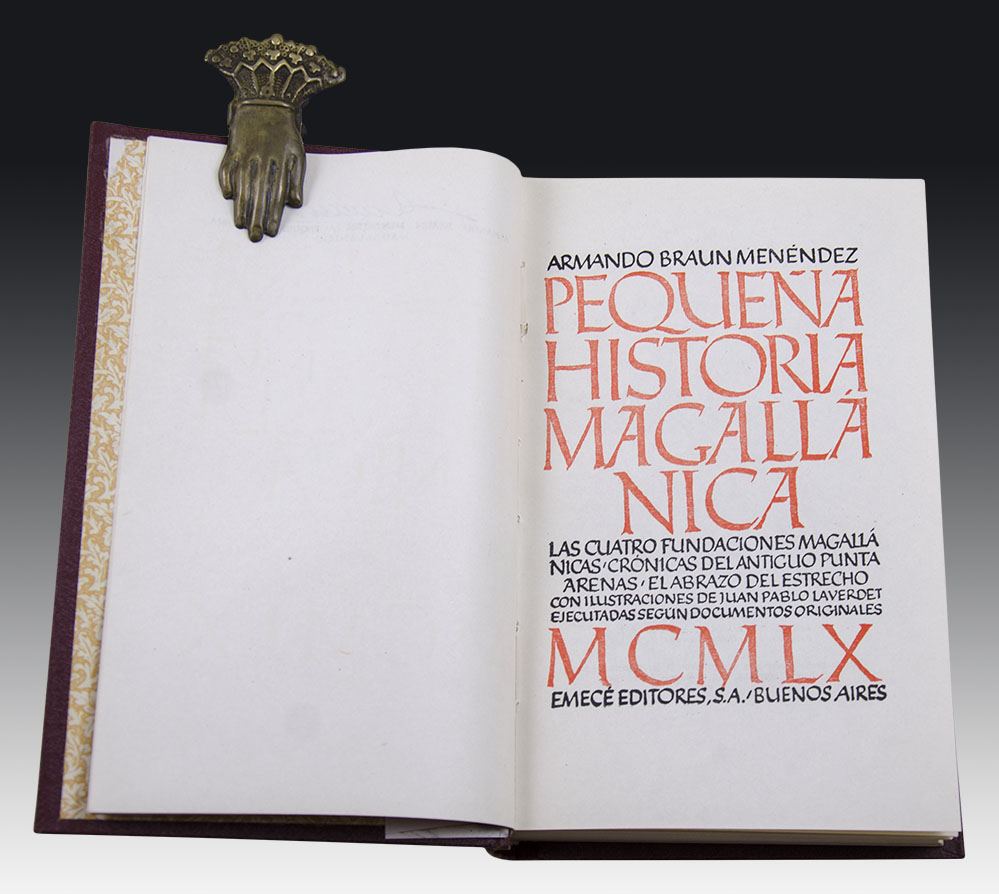 ARMANDO BRAUN MENÉNDEZ
PEQUEÑA
HISTORIA
MAGALLÁ
NICA
LAS CUATRO FUNDACIONES MAGALLÁ
NICAS, CRÓNICAS DEL ANTIGUO PUNTA
ARENAS, EL ABRAZO DEL ESTRECHO
CON ILUSTRACIONES DE JUAN PABLO LAVERDET
EJECUTADAS SEGÚN DOCUMENTOS ORIGINALES
MCMLX
EMECÉ EDITORES, S.A., BUENOS AIRES